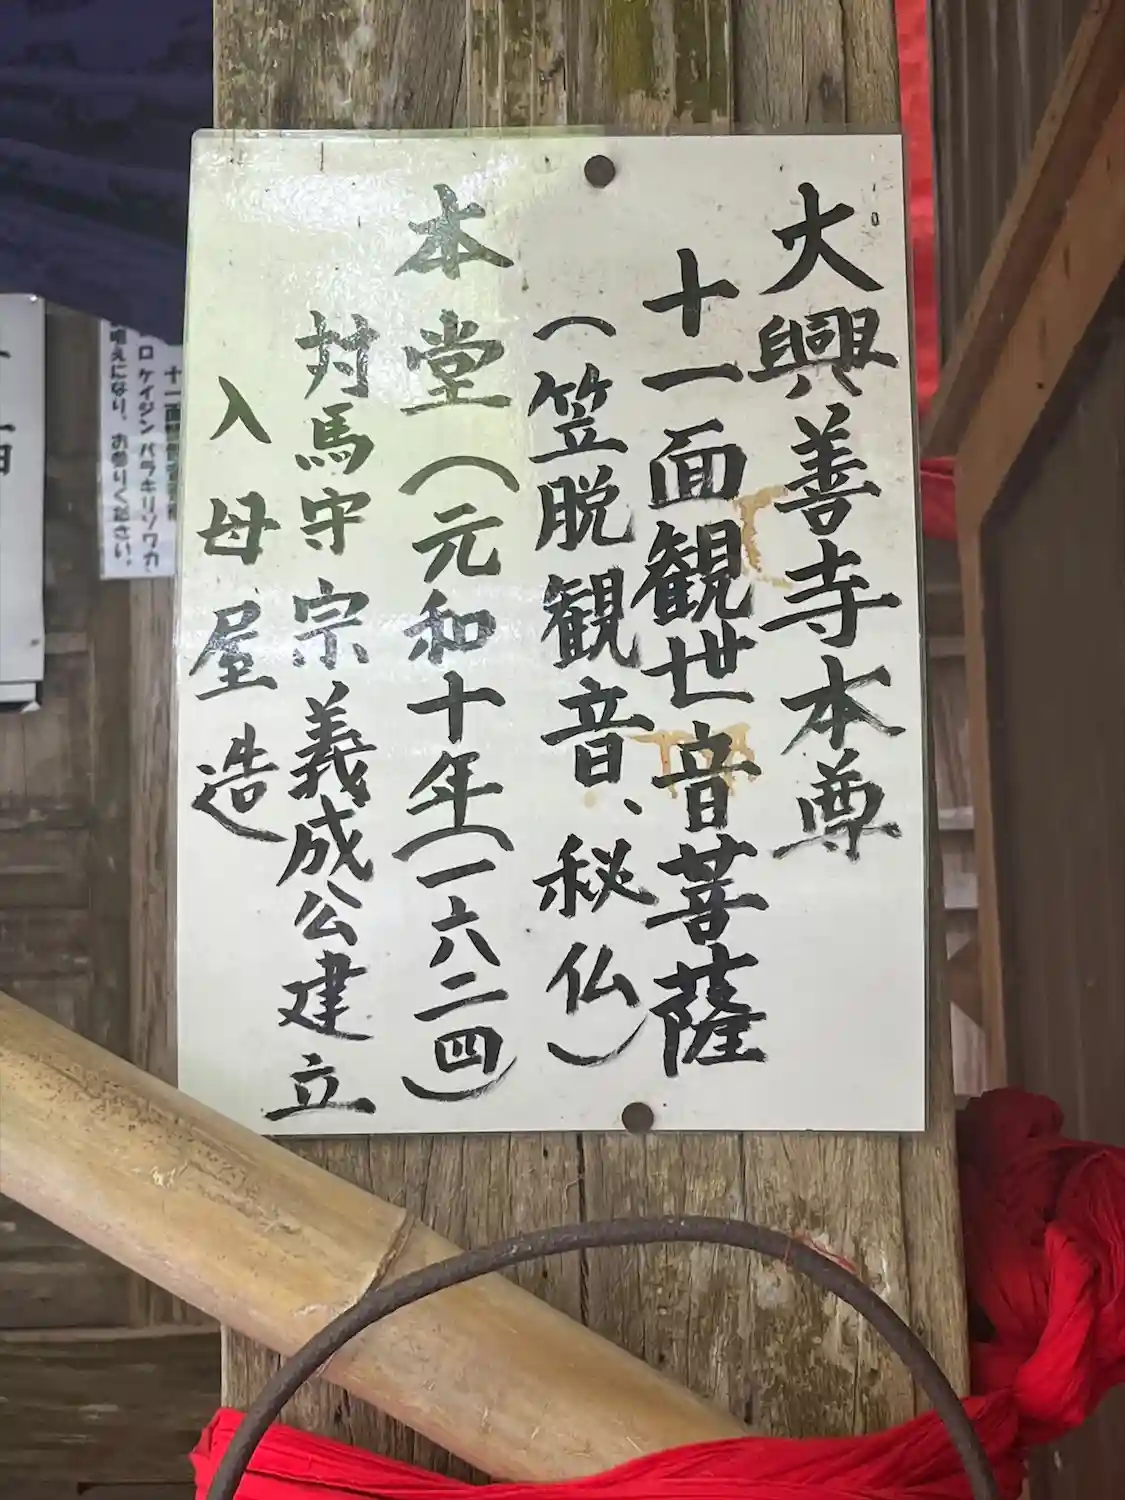 大興善寺本尊
十一面観世音菩薩
（笠脱観音、秘仏）
本堂（元和十年（一六二四）
対馬守宗義成公建立
入母屋造
十一面
ロケイジンバラキリソワカ
唱えになり、お参りください。